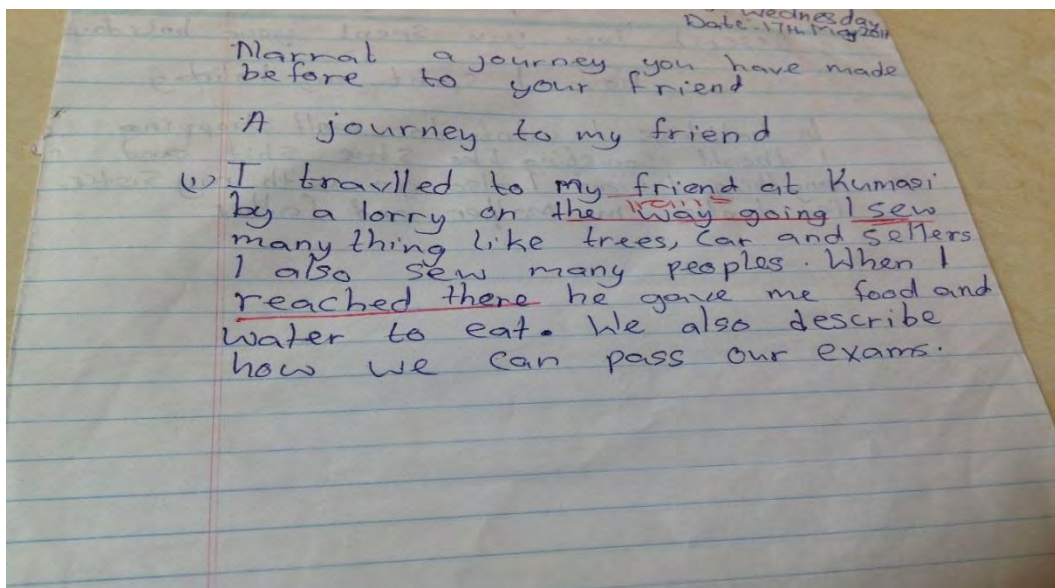 Wednesday
Date: 17th May 2017
Narrat a journey you have made
before to your friend
A journey to my friend
(1) I travlled to my friend at Kumasi
by a lorry on the way going I sew
many thing like trees, car and sellers
I also sew many peoples. When I
reached there he gave me food and
water to eat. We also describe
how we can pass our exams.